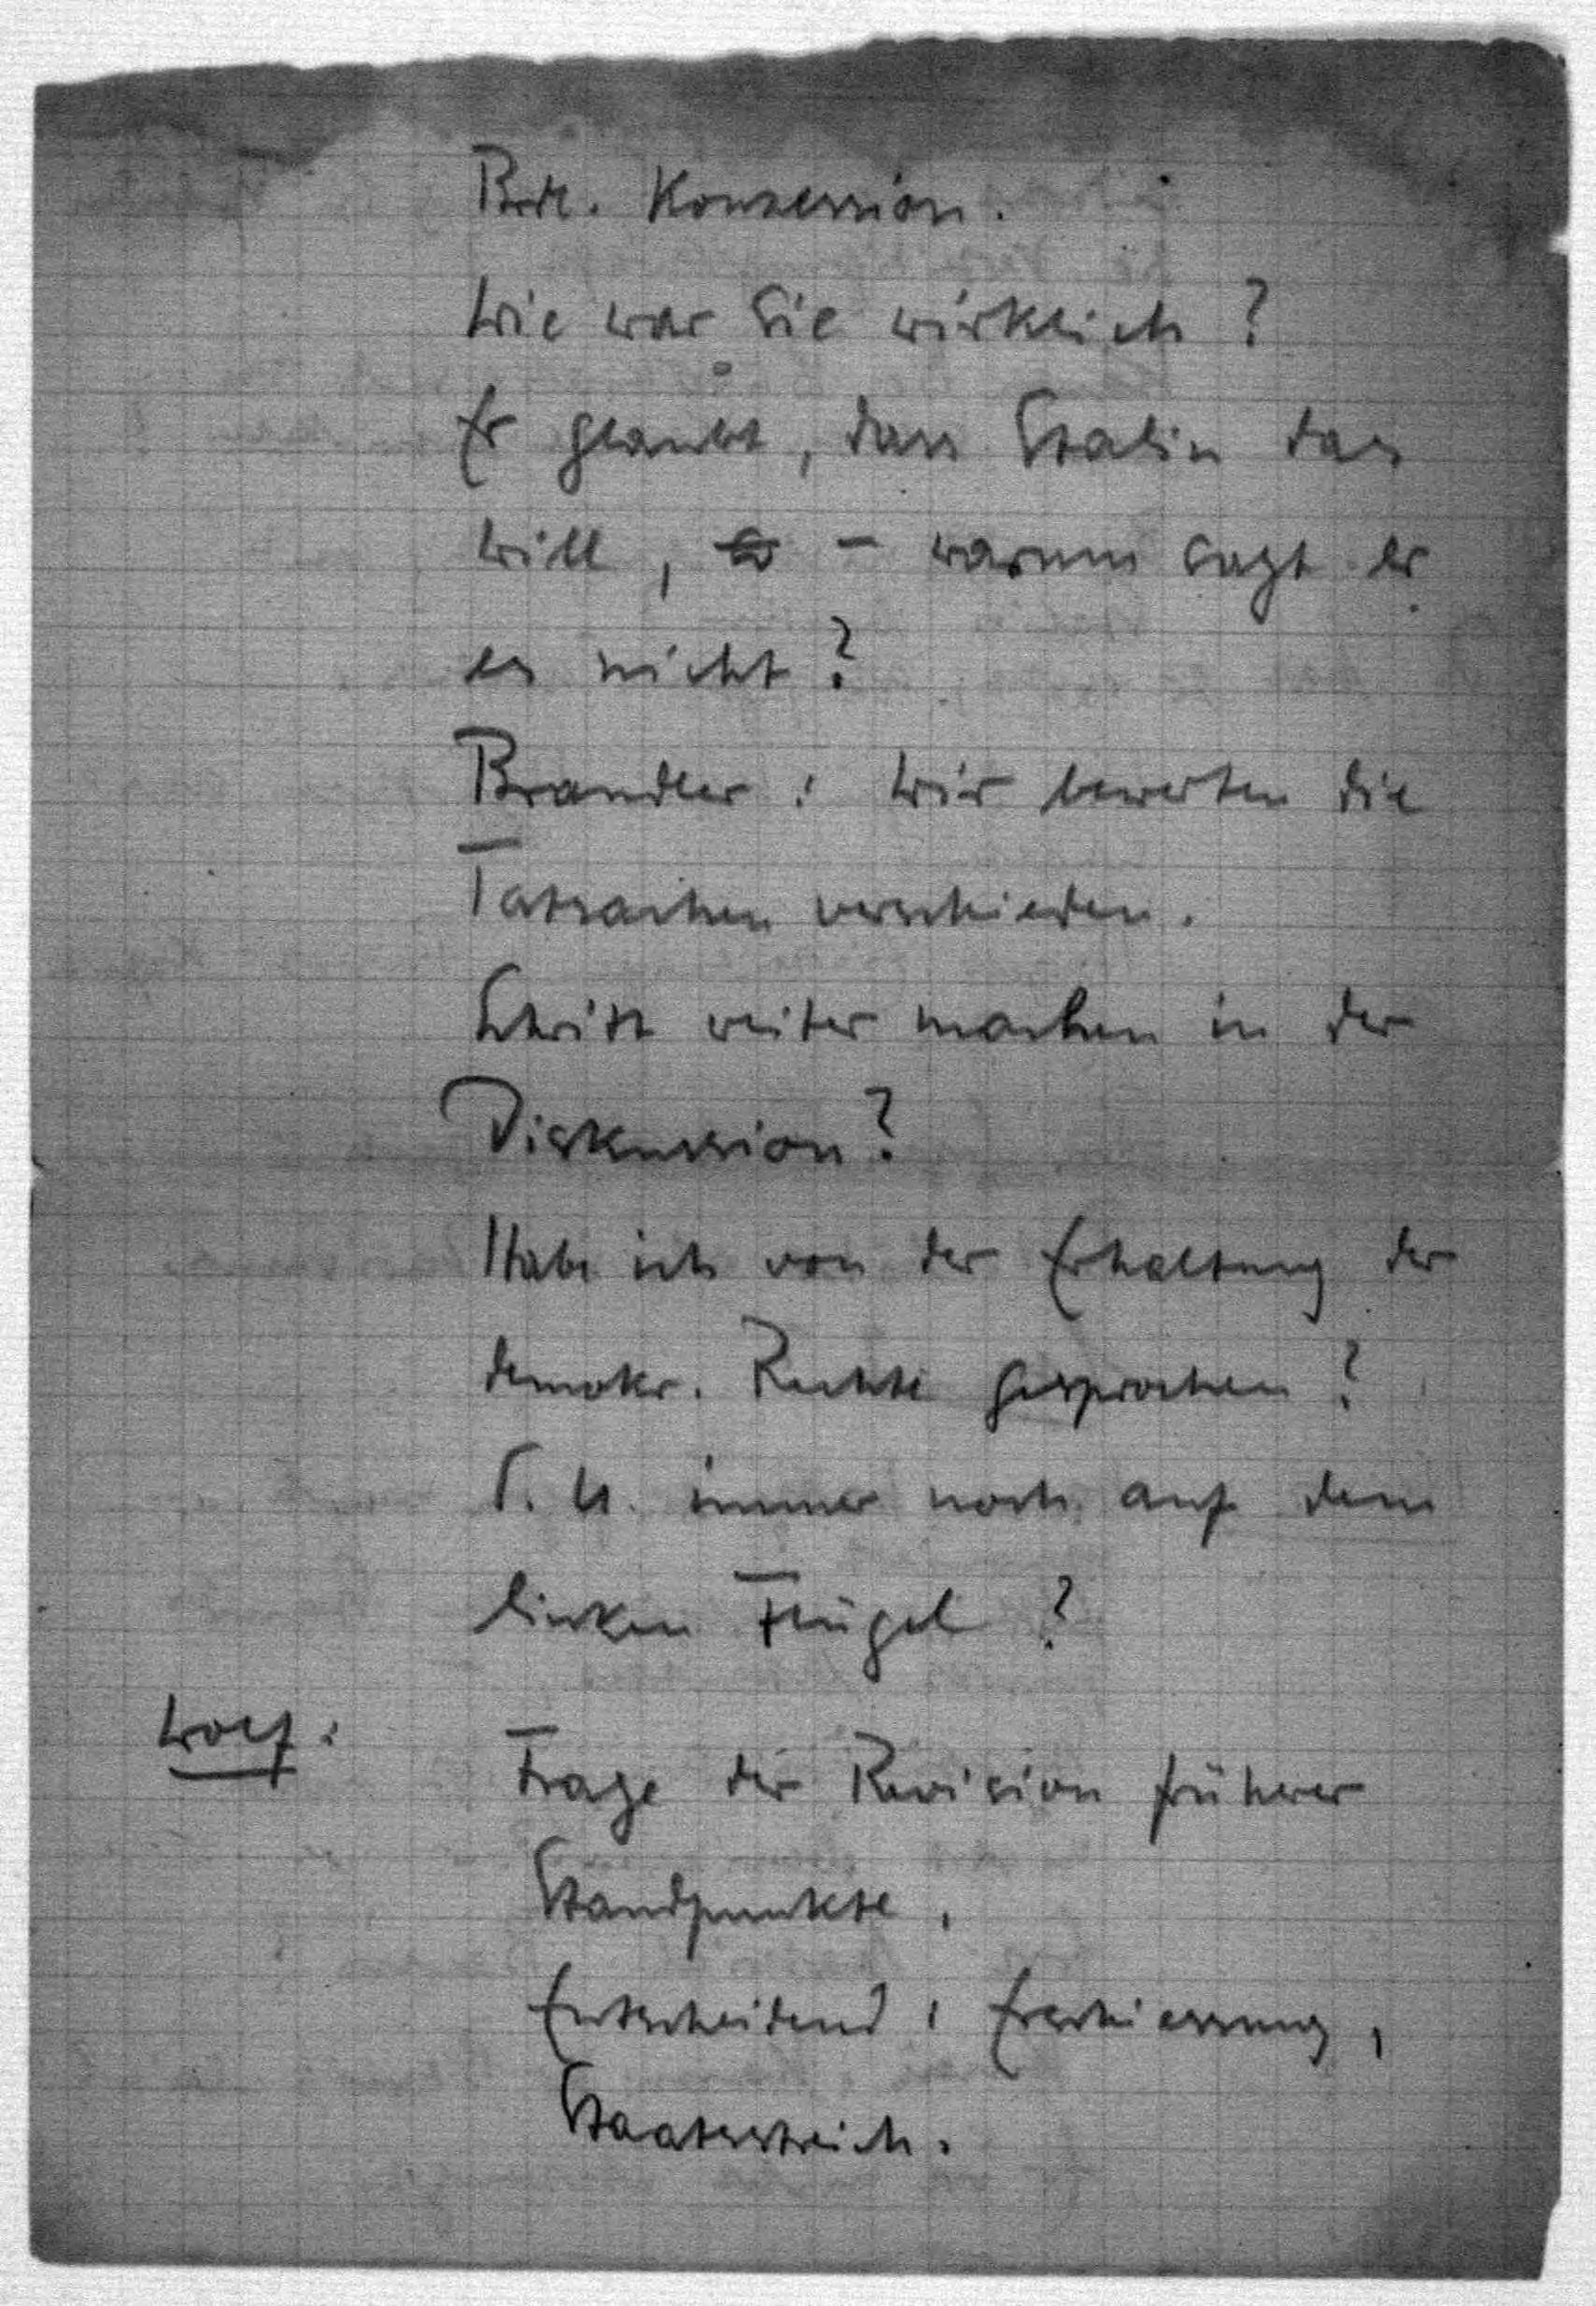 Konzession.
Wie war sie wirklich?
Er glaubt, dass Stalin das
will, – warum sagt er
es nicht?
Brandler: Wir bewerten die
Tatsachen verschieden.
Schritt weiter machen in der
Diskussion?
Habe ich von der Erhaltung der
demokr. Rechte gesprochen?
immer noch auf dem
linken Flügel?
Wolf:
Frage der Revision früherer
Standpunkte.
Entscheidend: Erschiessung,
Staatsstreich.